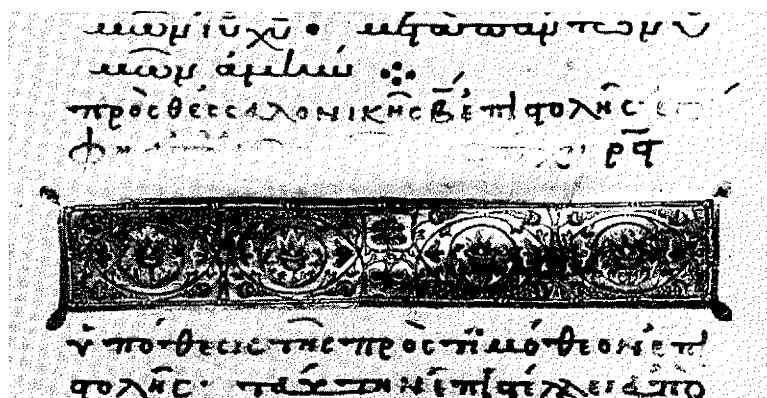 μῶν ἰῦ χῦ· μετὰ πάντων ὑ
μῶν ἀμήν
πρὸς θεσσαλονικῆς β ἐπιστολῆς
ρϟ
ὑπόθεσις τῆς πρὸς τιμόθεον ἐπι
στολῆς· ταύτην ἐπιστέλλει ἀπὸ